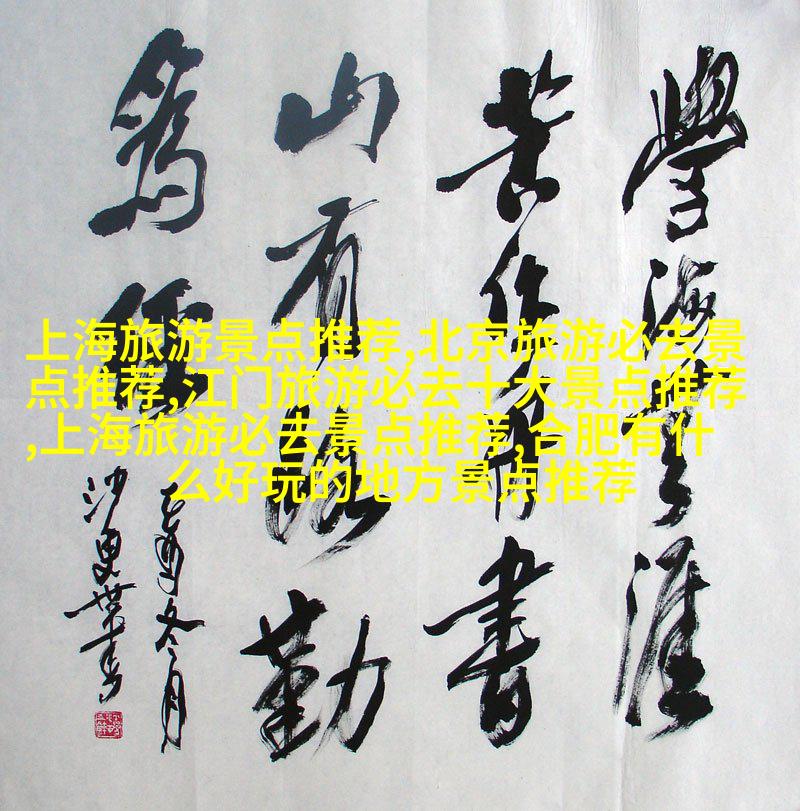 學海無涯
苦作舟書
山有路勤
為徑
乙酉冬月
沙更世書
上海旅游景点推荐,北京旅游必去景
点推荐,江门旅游必去十大景点推荐
,上海旅游必去景点推荐,合肥有什
么好玩的地方景点推荐